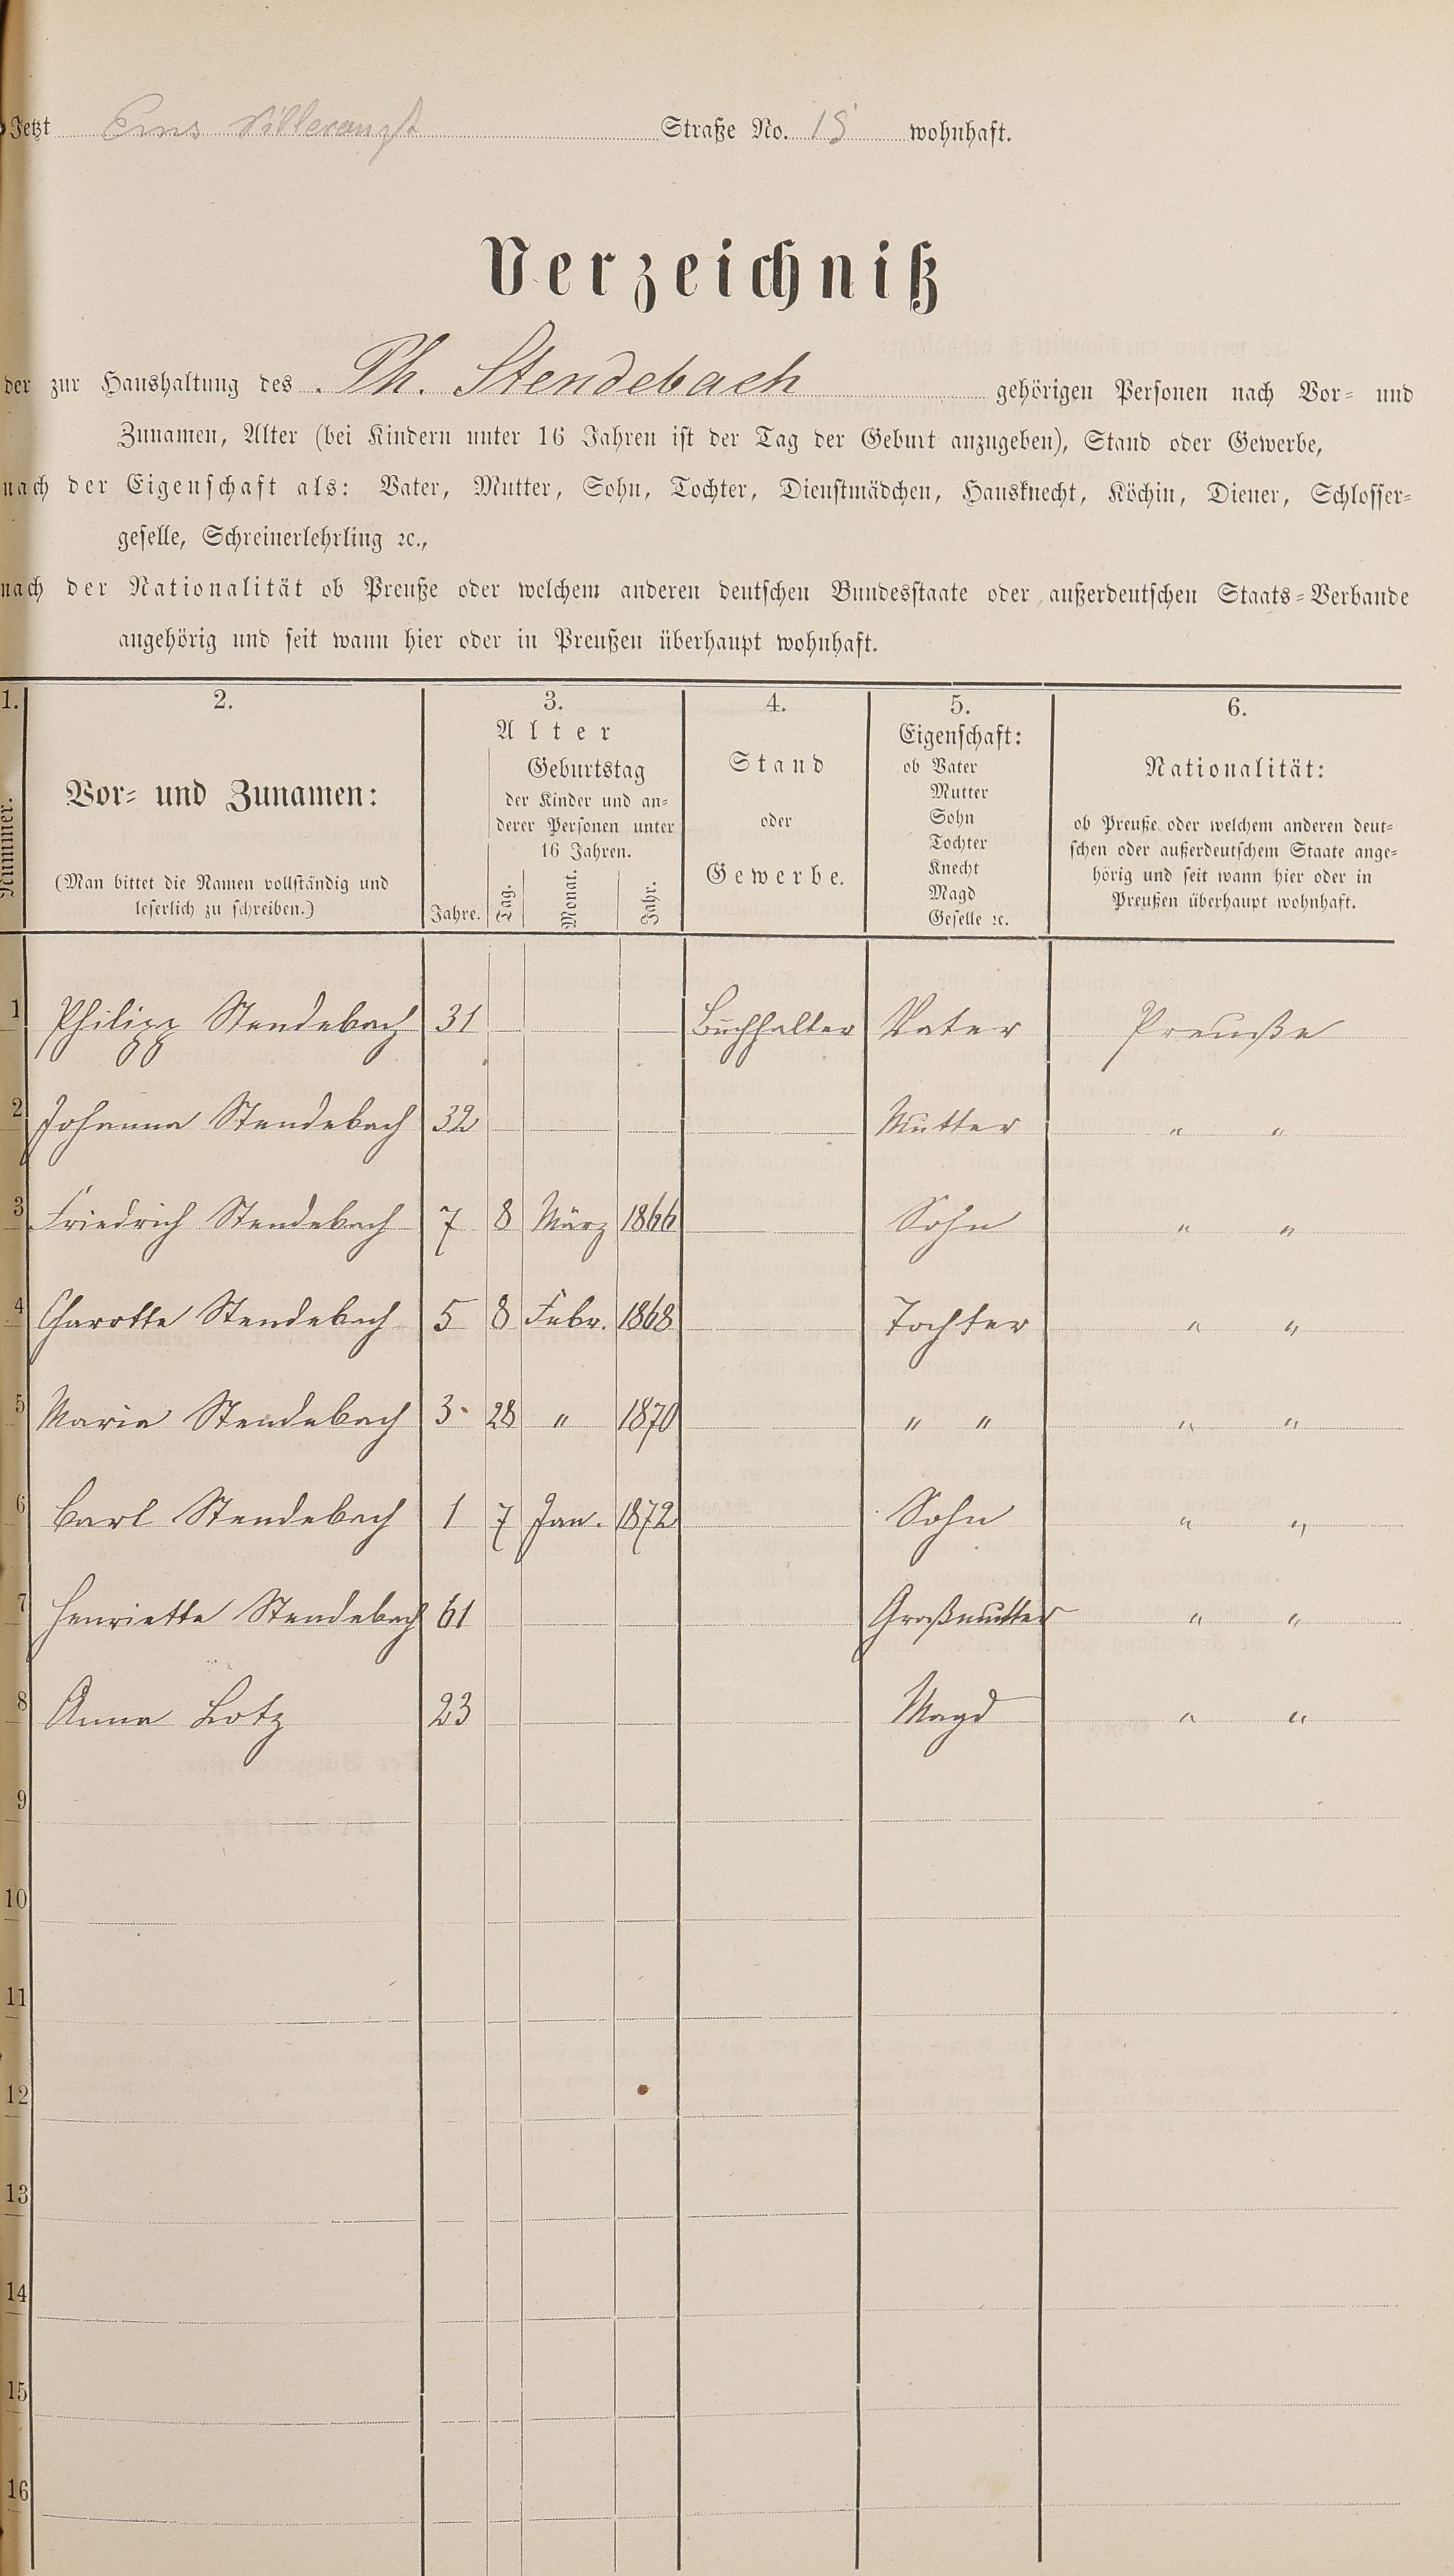 Jetzt Ems Straße No. wohnhaft.
Verzeichniß
der zur Haushaltung des Ph. Stendebach gehörigen Personen nach Vor- und
Zunamen, Alter (bei Kindern unter 16 Jahren ist der Tag der Geburt anzugeben), Stand oder Gewerbe,
nach der Eigenschaft als: Vater, Mutter, Sohn, Tochter, Dienstmädchen, Hausknecht, Köchin, Diener, Schlosser-
geselle, Schreinerlehrling ꝛc.,
nach der Nationalität ob Preuße oder welchem anderen deutschen Bundesstaate oder außerdeutschen Staats-Verbande
angehörig und seit wann hier oder in Preußen überhaupt wohnhaft.
1. 2. 3. 4. 5. 6.
Nummer.
Vor- und Zunamen:
(Man bittet die Namen vollständig und
leserlich zu schreiben.)
Alter
Jahre.
Geburtstag
der Kinder und an-
derer Personen unter
16 Jahren.
Tag. Monat. Jahr.
Stand
oder
Gewerbe.
Eigenschaft:
ob Vater
Mutter
Sohn
Tochter
Knecht
Magd
Geselle ꝛc.
Nationalität:
ob Preuße oder welchem anderen deut-
schen oder außerdeutschem Staate ange-
hörig und seit wann hier oder in
Preußen überhaupt wohnhaft.
1 Philipp Stendebach 31 Buchhalter Vater Preuße
2 Johanna Stendebach 32 Mutter " "
3 Friedrich Stendebach 7 8 März 1866 Sohn " "
4 Charotte Stendebach 5 8 Febr. 1868 Tochter " "
5 Maria Stendebach 3 28 " 1870 " " " "
6 Carl Stendebach 1 7 Jan. 1872 Sohn " "
7 Henriette Stendebach 61 Großmutter " "
8 Anna Lotz 23 Magd " "
9
10
11
12
13
14
15
16